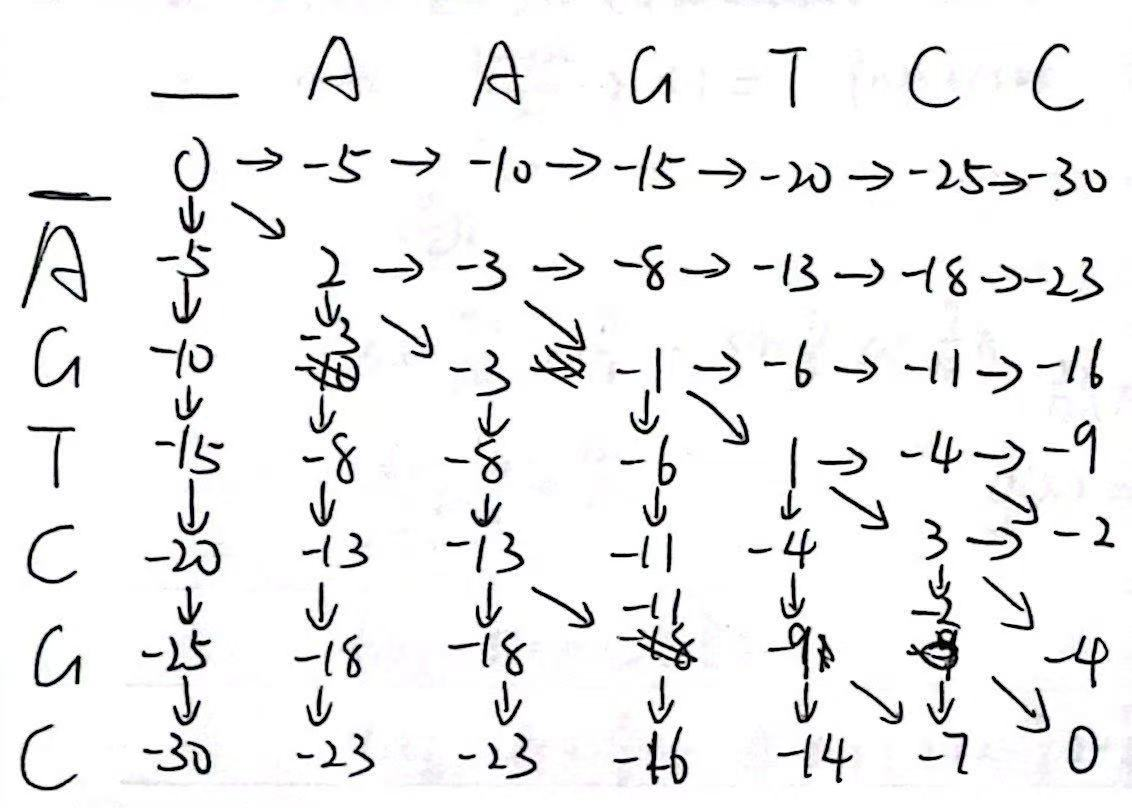 — A A G T C C
— 0 → -5 → -10 → -15 → -20 → -25 → -30
↓ ↘
A -5 2 → -3 → -8 → -13 → -18 → -23
↓ ↓ ↘ ↘
-3
G -10 -3 -1 → -6 → -11 → -16
↓ ↓ ↓ ↓ ↘
T -15 -8 -8 -6 1 → -4 → -9
↓ ↓ ↓ ↓ ↓ ↘ ↘
C -20 -13 -13 -11 -4 3 → -2
↓ ↓ ↓ ↘ ↓ ↓ ↘
-11 -2
G -25 -18 -18 -9 -4
↓ ↓ ↓ ↓ ↓ ↘ ↓ ↘
C -30 -23 -23 -16 -14 -7 0